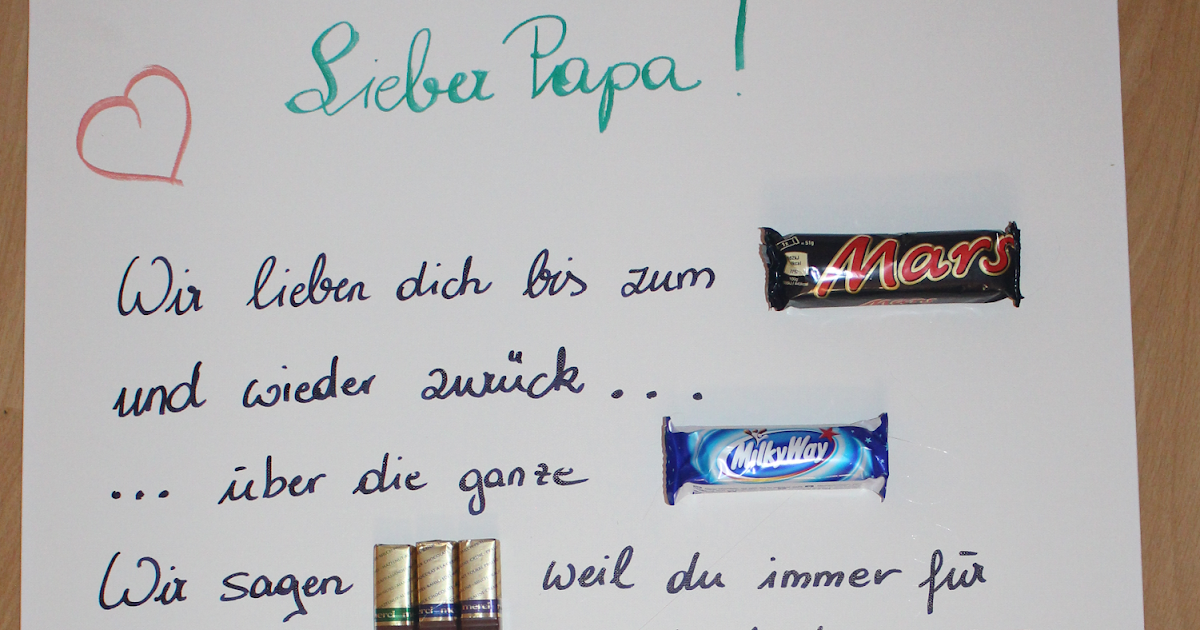 Lieber Papa!
Wir lieben dich bis zum Mars
und wieder zurück...
... über die ganze MilkyWay
Wir sagen merci weil du immer für